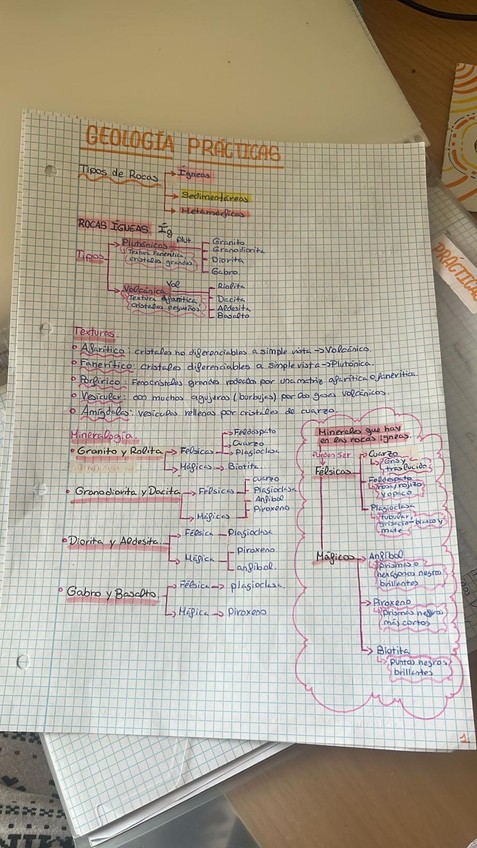 GEOLOGÍA PRÁCTICAS
Tipos de Rocas → Ígneas
→ Sedimentáreas
→ Metamórficas
ROCAS ÍGNEAS. Ïg
Tipos
Plutónicas plut.
Textura Fanerítica
cristales grandes
Granito
Granodiorita
Diorita
Gabro.
Volcánica Vol
Textura Afanítica
cristales pequeños
Riolita
Dacita
Aldesita
Basalto
Texturas
Afanítico: cristales no diferenciables a simple vista → Volcánico.
Fanerítico: cristales diferenciables a simple vista → Plutónica.
Porfírico: Fenocristales grandes rodeada por una matriz afanítica o fanerítica.
Vesicular: con muchos agujeros (burbujas) por los gases volcánicos.
Amígdalas: vesículas rellenas por cristales de cuarzo.
Mineralogía
Granito y Rolita → Félsicas → Feldespato
Cuarzo
Plagioclasa
→ Máficos → Biotita.
Granodiorita y Dacita → Félsicas
cuarzo
Plagioclasa
→ Máficos
Anfibol
Piroxeno
Diorita y Aldesita
Félsica → Plagioclasa
Máfica
Piroxeno
anfibol.
Gabro y Basalto
Félsica → plagioclasa
Máfica → Piroxeno
Minerales que hay
en las rocas ígneas.
Pueden Ser
Félsicos
Cuarzo
Gris y
traslucido
Feldespato
ros/rojizo
y opico
Plagioclasa
tubular
blanco y
mate
Máficos → Anfibol
prismas o
hexágonos negros
brillantes
Piroxeno
prismas negros
más cortos
Biotita
Puntos negros
brillantes
1
PRÁCTICA